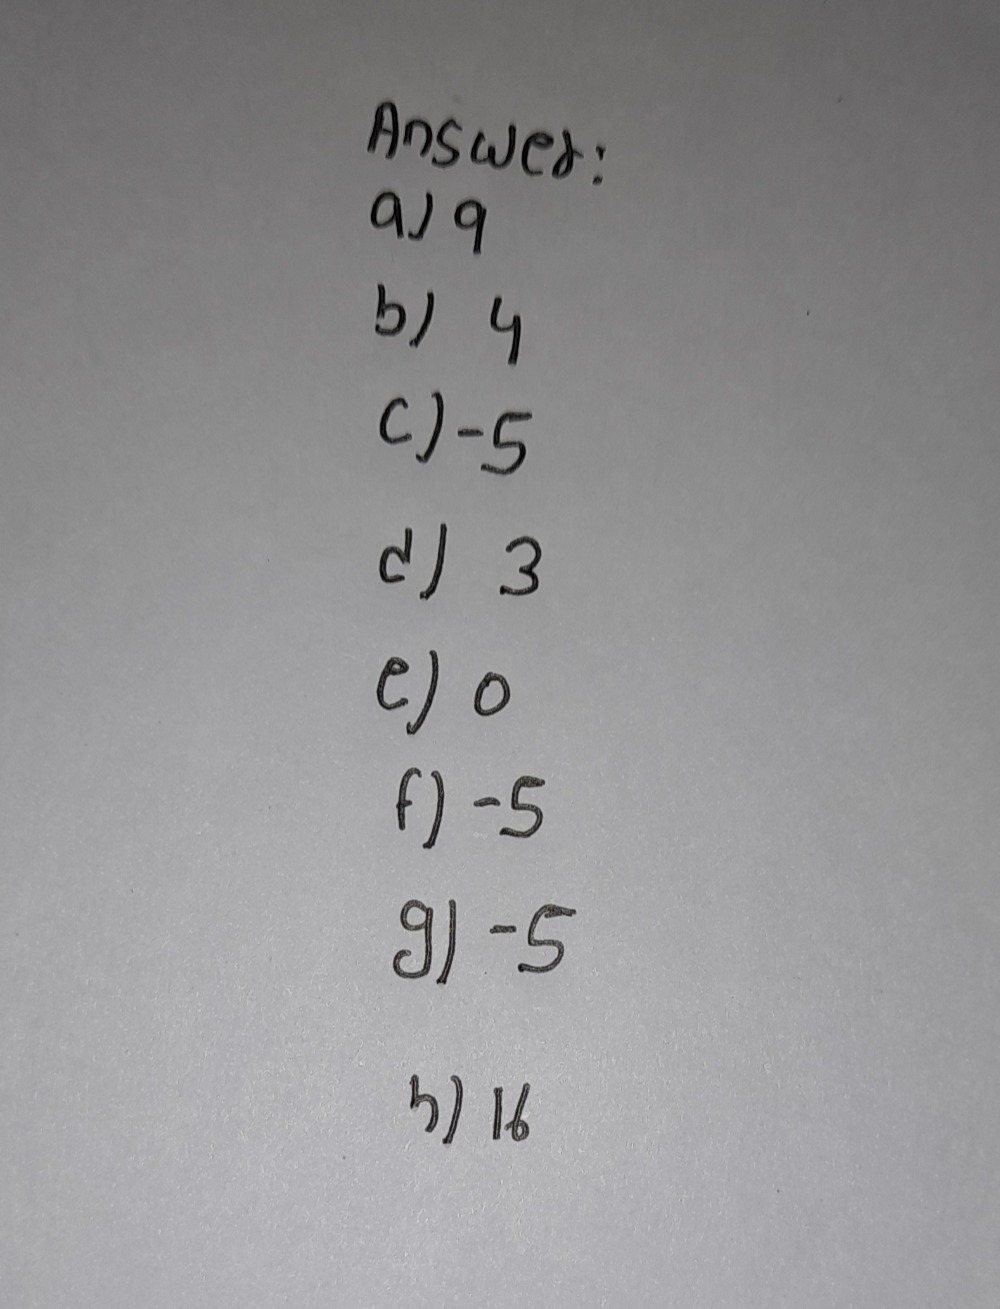 Answer:
a) 9
b) 4
c) -5
d) 3
e) 0
f) -5
g) -5
h) 16